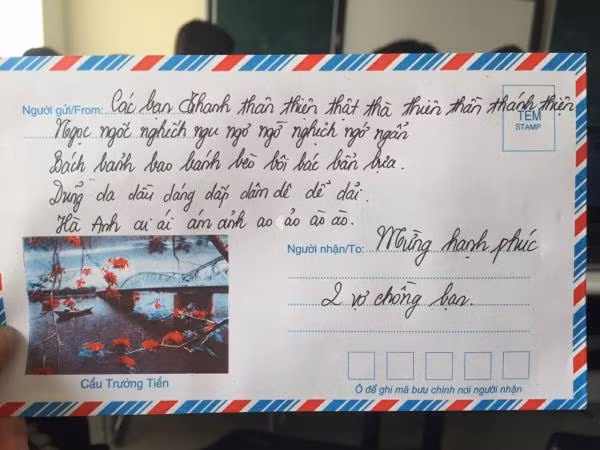 Người gửi/From: Các bạn Thanh thân thiện thật thà thiên thần thánh thiện
TEM
STAMP
Ngọc ngốt nghếch ngu ngơ ngố nghịch ngớ ngẩn
Bách bảnh bao bánh bèo bôi bác bẩn bựa.
Dung da dầu dáng dấp dâm dê dễ dãi.
Hà Anh ai ái ám ảnh ao ảo ào ào.
Người nhận/To: Mừng hạnh phúc
2 vợ chồng bạn.
Cầu Trường Tiền
Ô để ghi mã bưu chính nơi người nhận